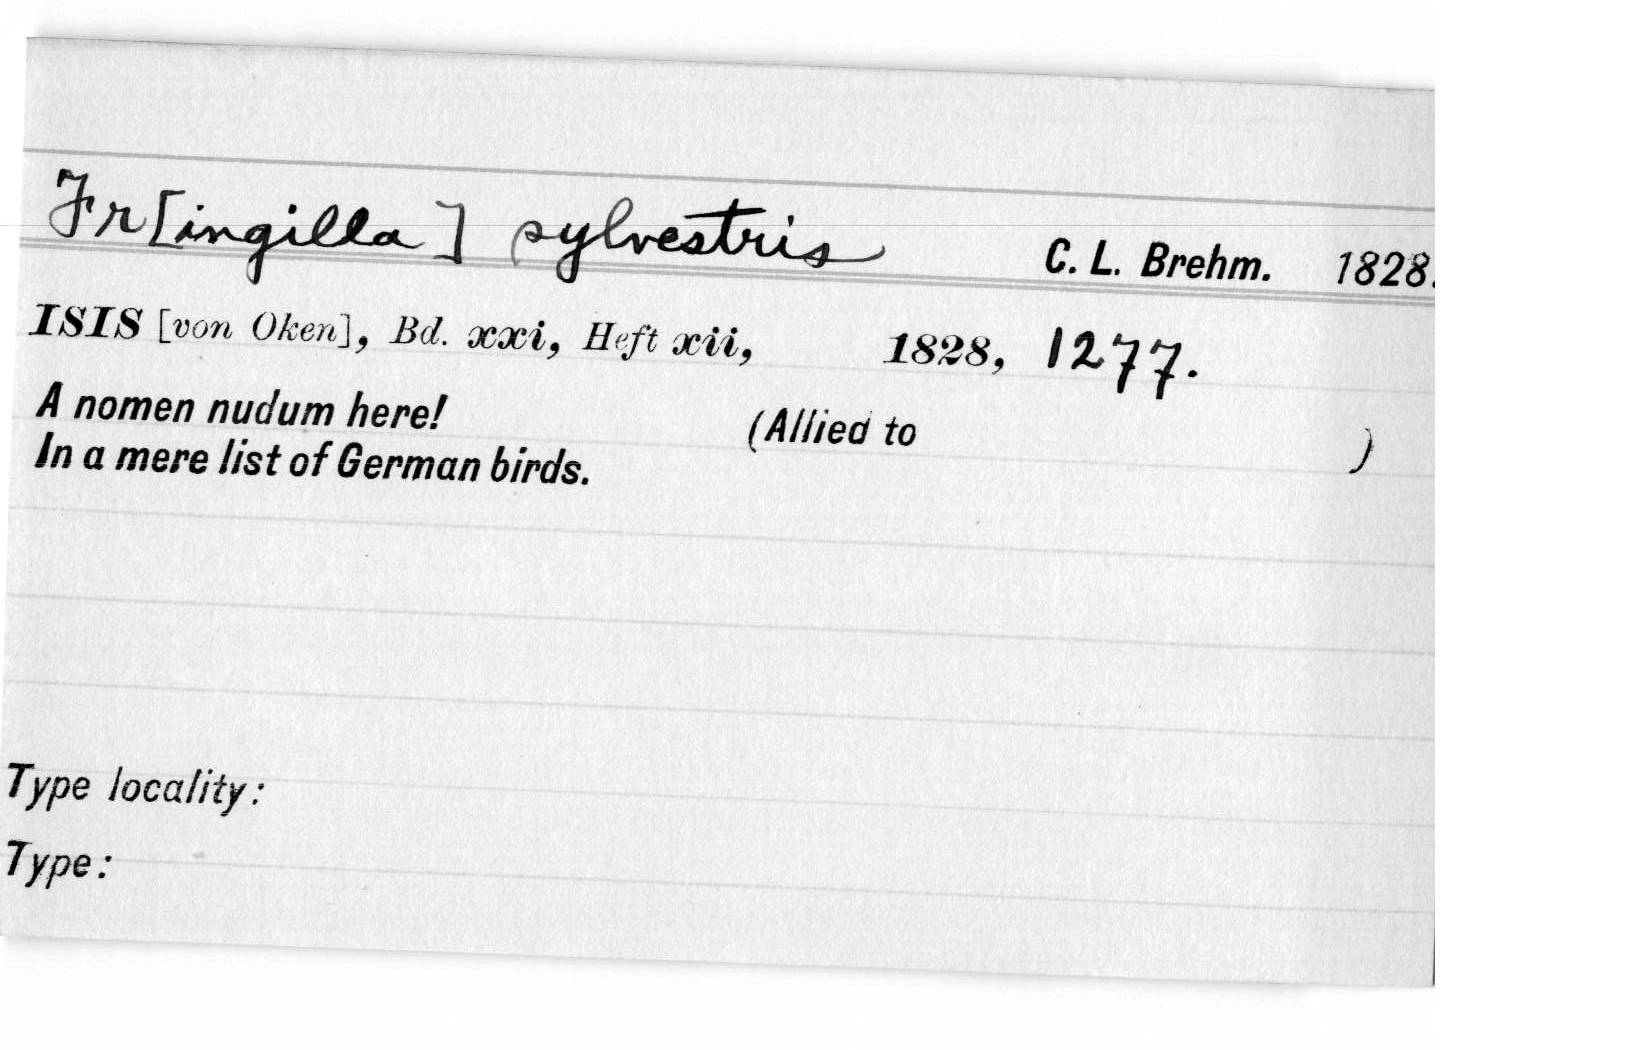 Fr[ingilla] sylvestris C. L. Brehm. 1828.
ISIS [von Oken], Bd. xxi, Heft xii, 1828, 1277.
A nomen nudum here! (Allied to )
In a mere list of German birds.
Type locality:
Type: